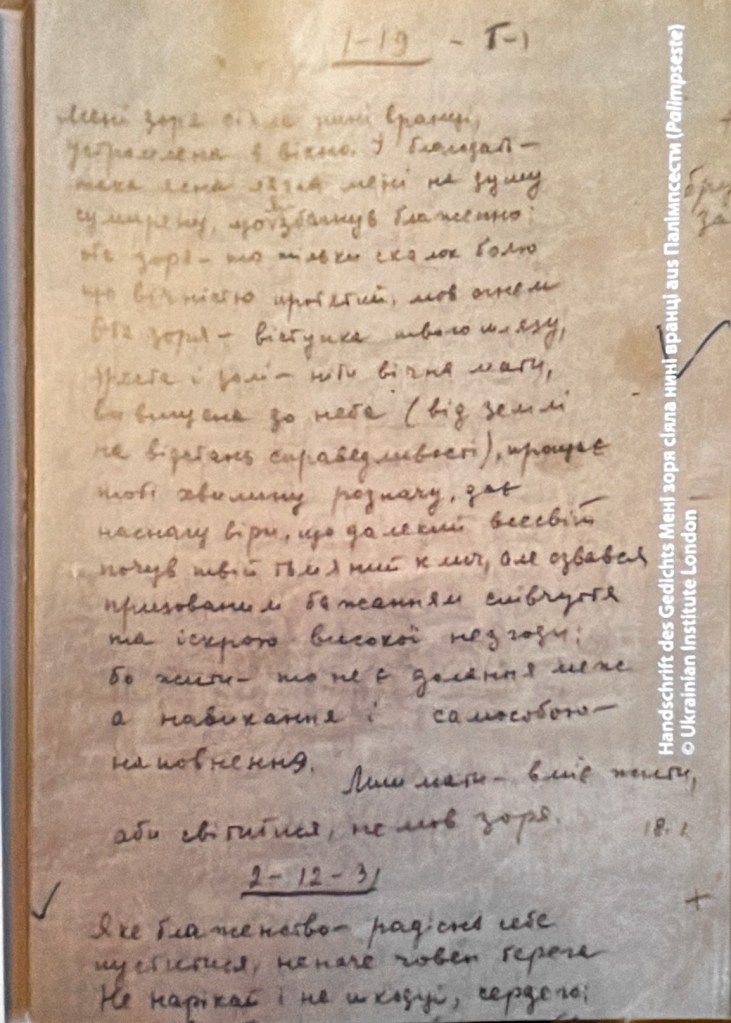 1-19 - Т-1
Мені зоря сіяла нині вранці,
устромлена в вікно. І благодать -
така ясна лягла мені на душу
сумирену, що я збагнув блаженно:
ота зоря - то тільки скалок болю
що вічністю протятий, мов огнем
Ота зоря - вістунка твого шляху,
хреста і долі - ніби вічна мати,
вивищена до неба (від землі
на відстань справедливості), прощає
тобі хвилину розпачу, дає
наснагу віри, що далекий всесвіт
почув твій тьмяний клич, але озвався
прихованим бажанням співчуття
та іскрою високої незгоди:
бо жити - то не є долання меж
а навикання і самособою -
наповнення.
Лиш мати - вміє жити,
аби світитися, немов зоря.
18.1
2-12-31
Яке блаженство - радісно себе
пустити, неначе човен
Не нарікай і не шкодуй, сердего:
+
Handschrift des Gedichts Мені зоря сіяла нині вранці aus Палімпсести (Palimpseste)
© Ukrainian Institute London